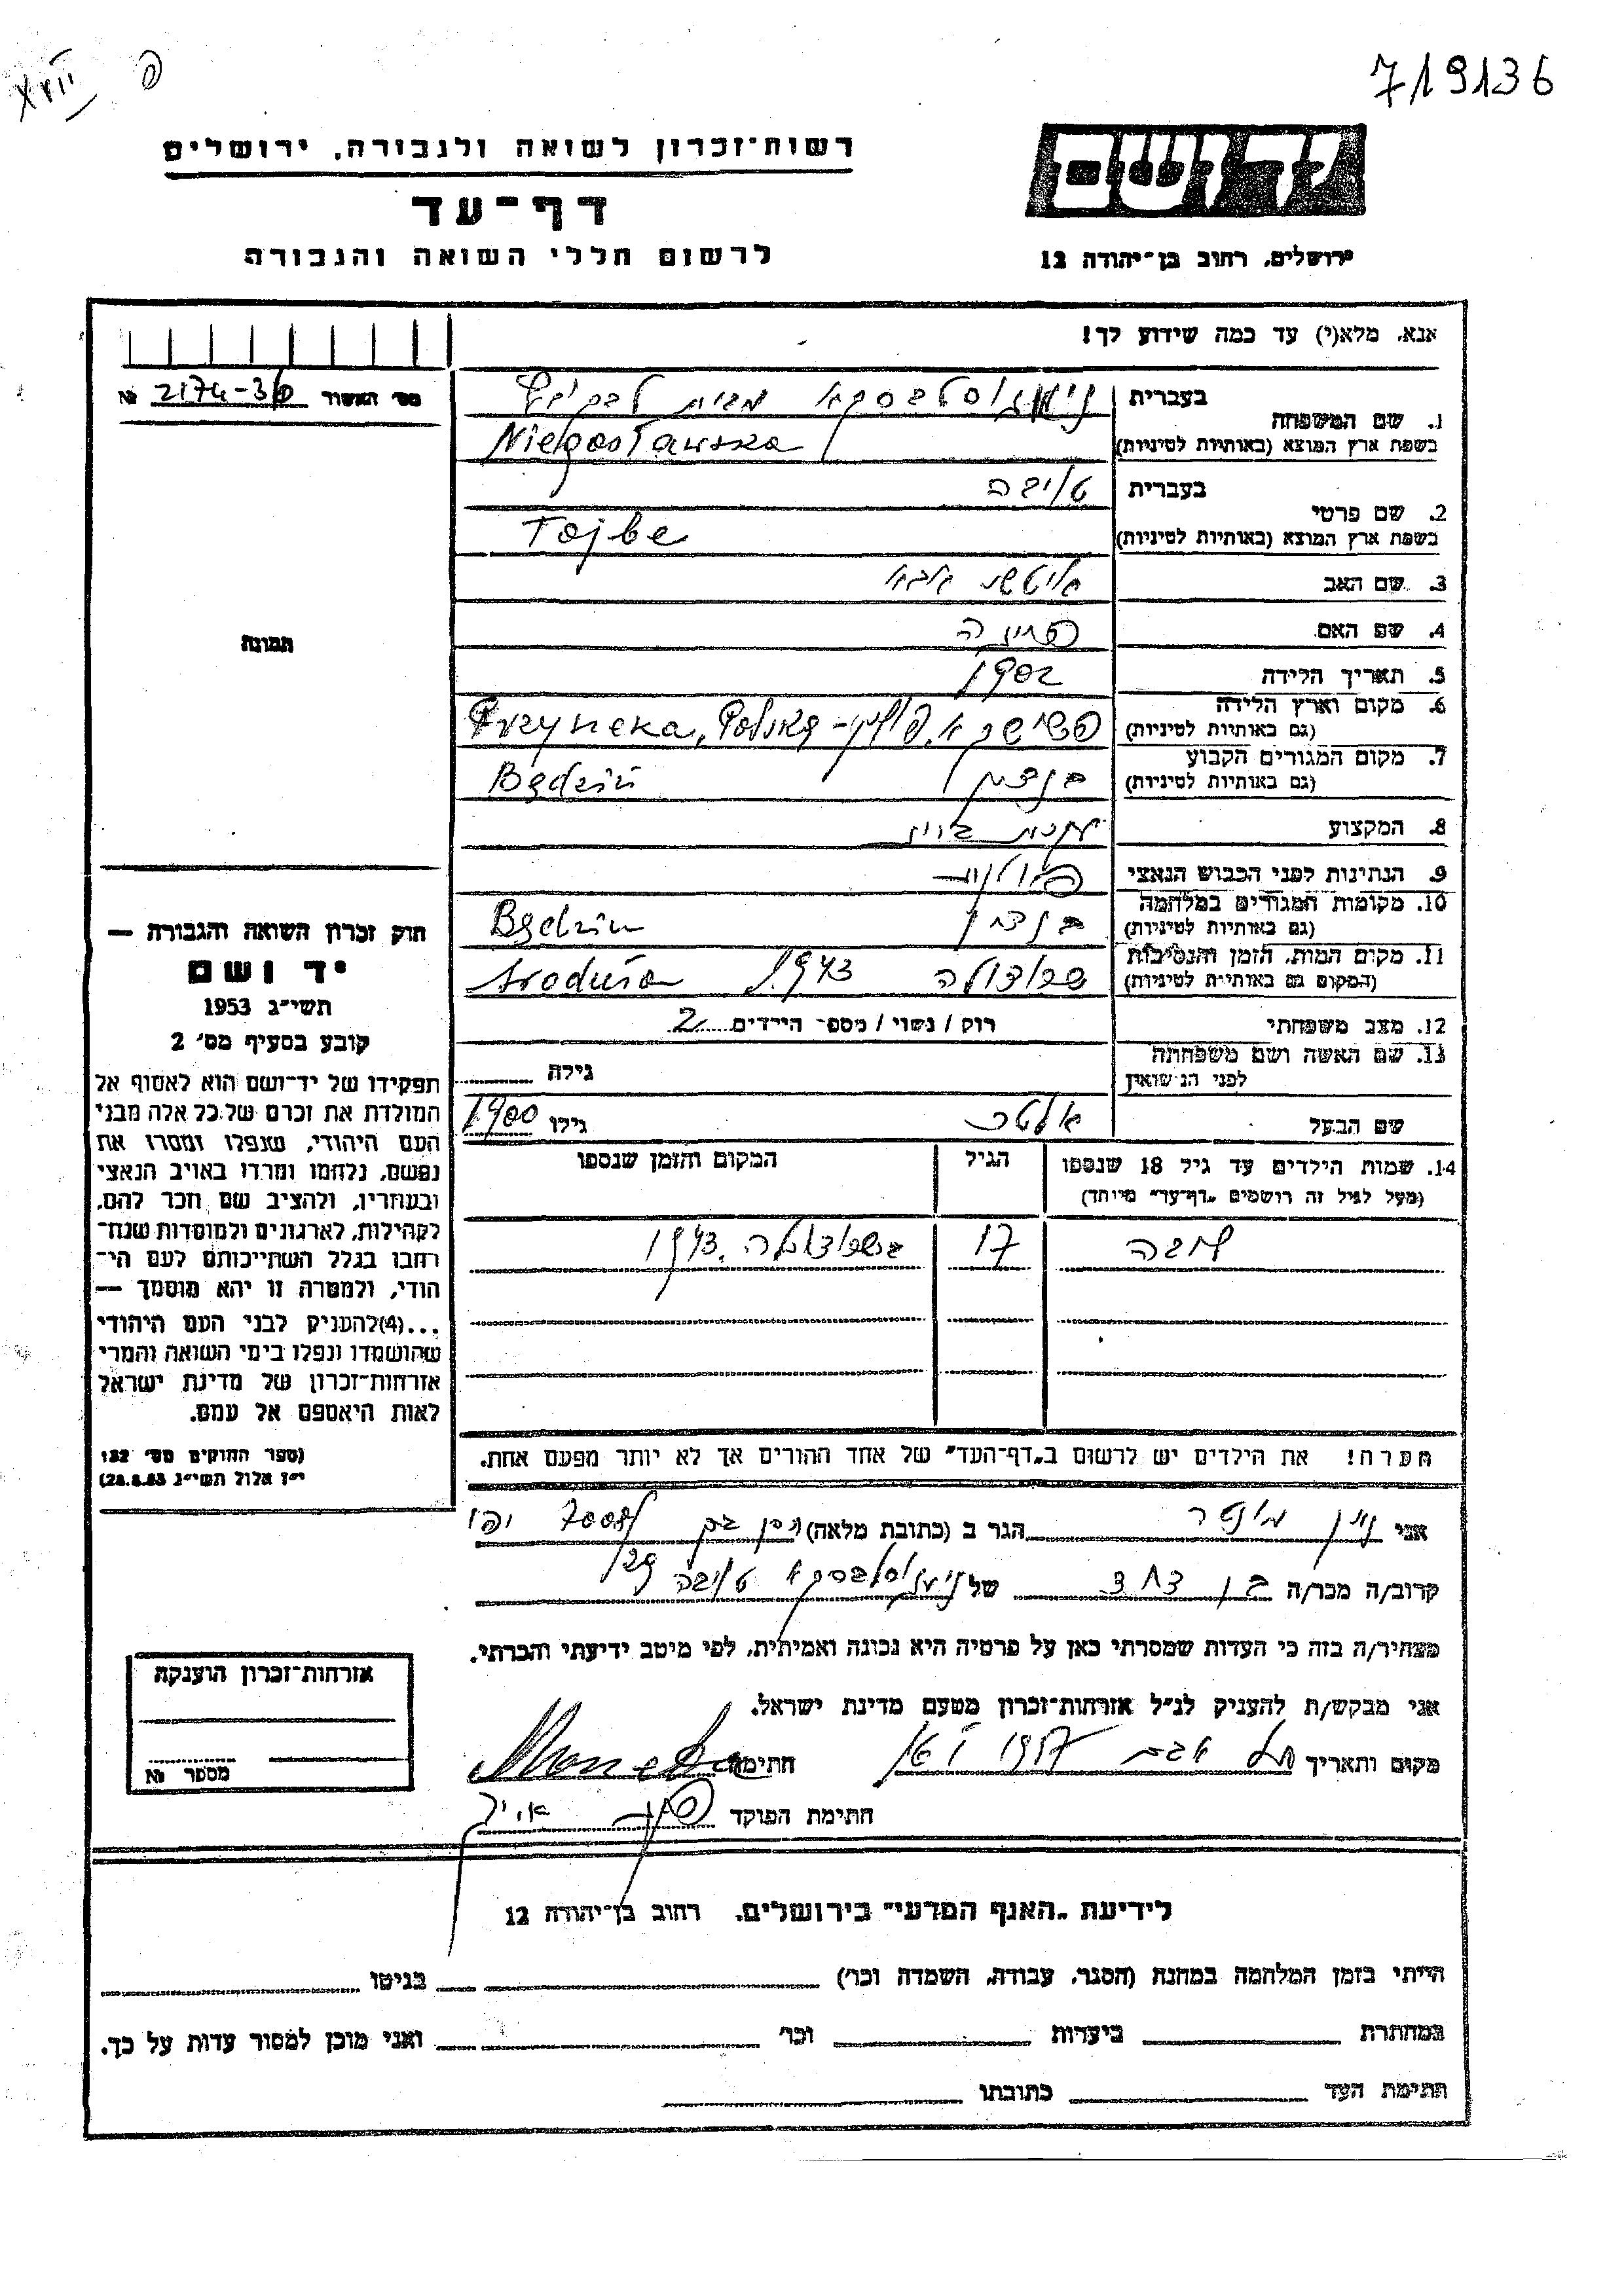 719136
XVII פ
יד ושם
רשות־זכרון לשואה ולגבורה, ירושלים
דף־עד
לרשום חללי השואה והגבורה
ירושלים, רחוב בן־יהודה 12
אנא, מלא(י) עד כמה שידוע לך!
מס׳ האשור 2174-36 №
1. שם המשפחה בעברית מבית
בשפת ארץ המוצא (באותיות לטיניות) Niegosławska
2. שם פרטי בעברית טויבה
בשפת ארץ המוצא (באותיות לטיניות) Tojbe
3. שם האב
4. שם האם
5. תאריך הלידה 1902
6. מקום וארץ הלידה
(גם באותיות לטיניות) פולין - Polska
7. מקום המגורים הקבוע
(גם באותיות לטיניות) בנדצין Będzin
8. המקצוע עקרת בית
9. הנתינות לפני הכבוש הנאצי פולנית
10. מקומות המגורים במלחמה
(גם באותיות לטיניות) בנדצין Będzin
11. מקום המות, הזמן והנסיבות
(המקום גם באותיות לטיניות) שרודולה 1943 Srodula
12. מצב משפחתי רוק / נשוי / מספר הילדים 2
13. שם האשה ושם משפחתה
לפני הנישואין גילה
שם הבעל אלטר גילו 1900
14. שמות הילדים עד גיל 18 שנספו הגיל המקום והזמן שנספו
(מעל לגיל זה רושמים „דף־עד” מיוחד)
17 בשרודולה 1943
הערה! את הילדים יש לרשום ב„דף־העד” של אחד ההורים אך לא יותר מפעם אחת.
תמונה
חוק זכרון השואה והגבורה —
יד ושם
תשי״ג 1953
קובע בסעיף מס׳ 2
תפקידו של יד־ושם הוא לאסוף אל
המולדת את זכרם של כל אלה מבני
העם היהודי, שנפלו ומסרו את
נפשם, נלחמו ומרדו באויב הנאצי
ובעוזריו, ולהציב שם וזכר להם,
לקהילות, לארגונים ולמוסדות שנח־
רבו בגלל השתייכותם לעם הי־
הודי, ולמטרה זו יהא מוסמך —
...(4)להעניק לבני העם היהודי
שהושמדו ונפלו בימי השואה והמרי
אזרחות־זכרון של מדינת ישראל
לאות היאספם אל עמם.
(ספר החוקים מס׳ 132
י״ז אלול תשי״ג 28.8.53)
אני הגר ב (כתובת מלאה) יפו
קרוב/ה מכר/ה בן דוד של טויבה
מצהיר/ה בזה כי העדות שמסרתי כאן על פרטיה היא נכונה ואמיתית, לפי מיטב ידיעתי והכרתי.
אני מבקש/ת להעניק לנ״ל אזרחות־זכרון מטעם מדינת ישראל.
מקום ותאריך תל אביב 1957 חתימה
חתימת הפוקד
אזרחות־זכרון הוענקה
מספר №
לידיעת „האגף המדעי” בירושלים, רחוב בן־יהודה 12
הייתי בזמן המלחמה במחנה (הסגר, עבודה, השמדה וכו׳) בגיטו
במחתרת ביערות וכו׳ ואני מוכן למסור עדות על כך.
חתימת העד כתובתו